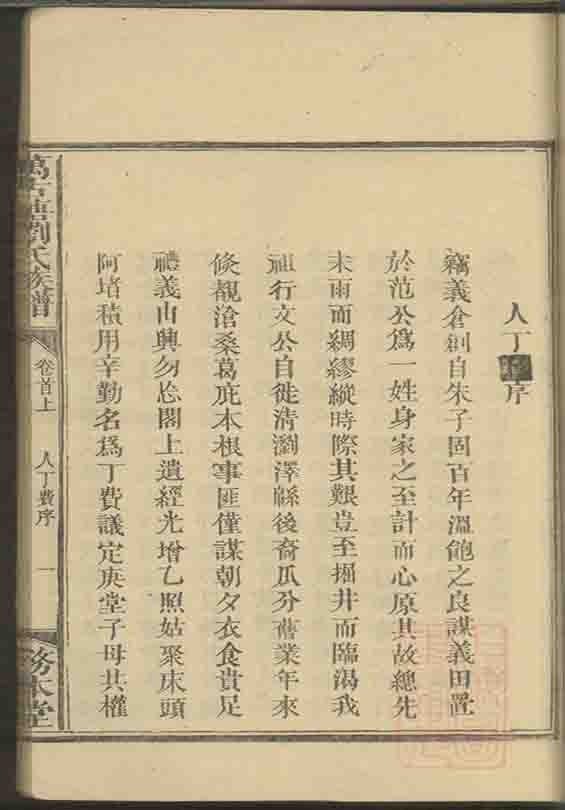 人丁序
竊義倉創自朱子固百年溫飽之良謀義田置
於范公爲一姓身家之至計而心原其故總先
未雨而綢繆縱時際其艱豈至掘井而臨渴我
祖行文公自徙清瀏澤緜後裔瓜分舊業年來
倐覩滄桑葛庇本根事匪僅謀朝夕衣食貴足
禮義由興勿忘閣上遺經光增乙照姑聚床頭
阿堵積用辛勤名爲丁費議定庚堂子母共權
劉氏族譜
卷首上
人丁費序
一
務本堂